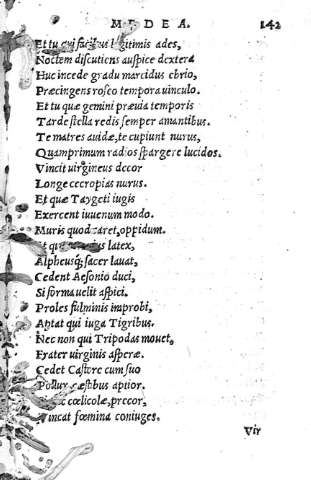 MEDEA. 142
Et tu qui facibus legitimis ades,
Noctem discutiens auspice dextera
Huc incede gradu marcidus ebrio,
Præcingens roseo tempora uinculo.
Et tu quæ gemini præuia temporis
Tarde stella redis semper amantibus.
Te matres auidæ, te cupiunt nurus,
Quamprimum radios spargere lucidos.
Vincit uirgineus decor
Longe cecropias nurus.
Et quæ Taygeti iugis
Exercent iuuenum modo.
Muris quod caret, oppidum.
Et latex,
Alpheusq; sacer lauat,
Cedent Aesonio duci,
Si forma uelit aspici.
Proles fulminis improbi,
Aptat qui iuga Tigribus.
Nec non qui Tripodas mouet,
Frater uirginis asperæ.
Cedet Castore cum suo
Pollux cæstibus aptior.
cœlicolæ, precor,
Vincat fœmina coniuges.
Vir